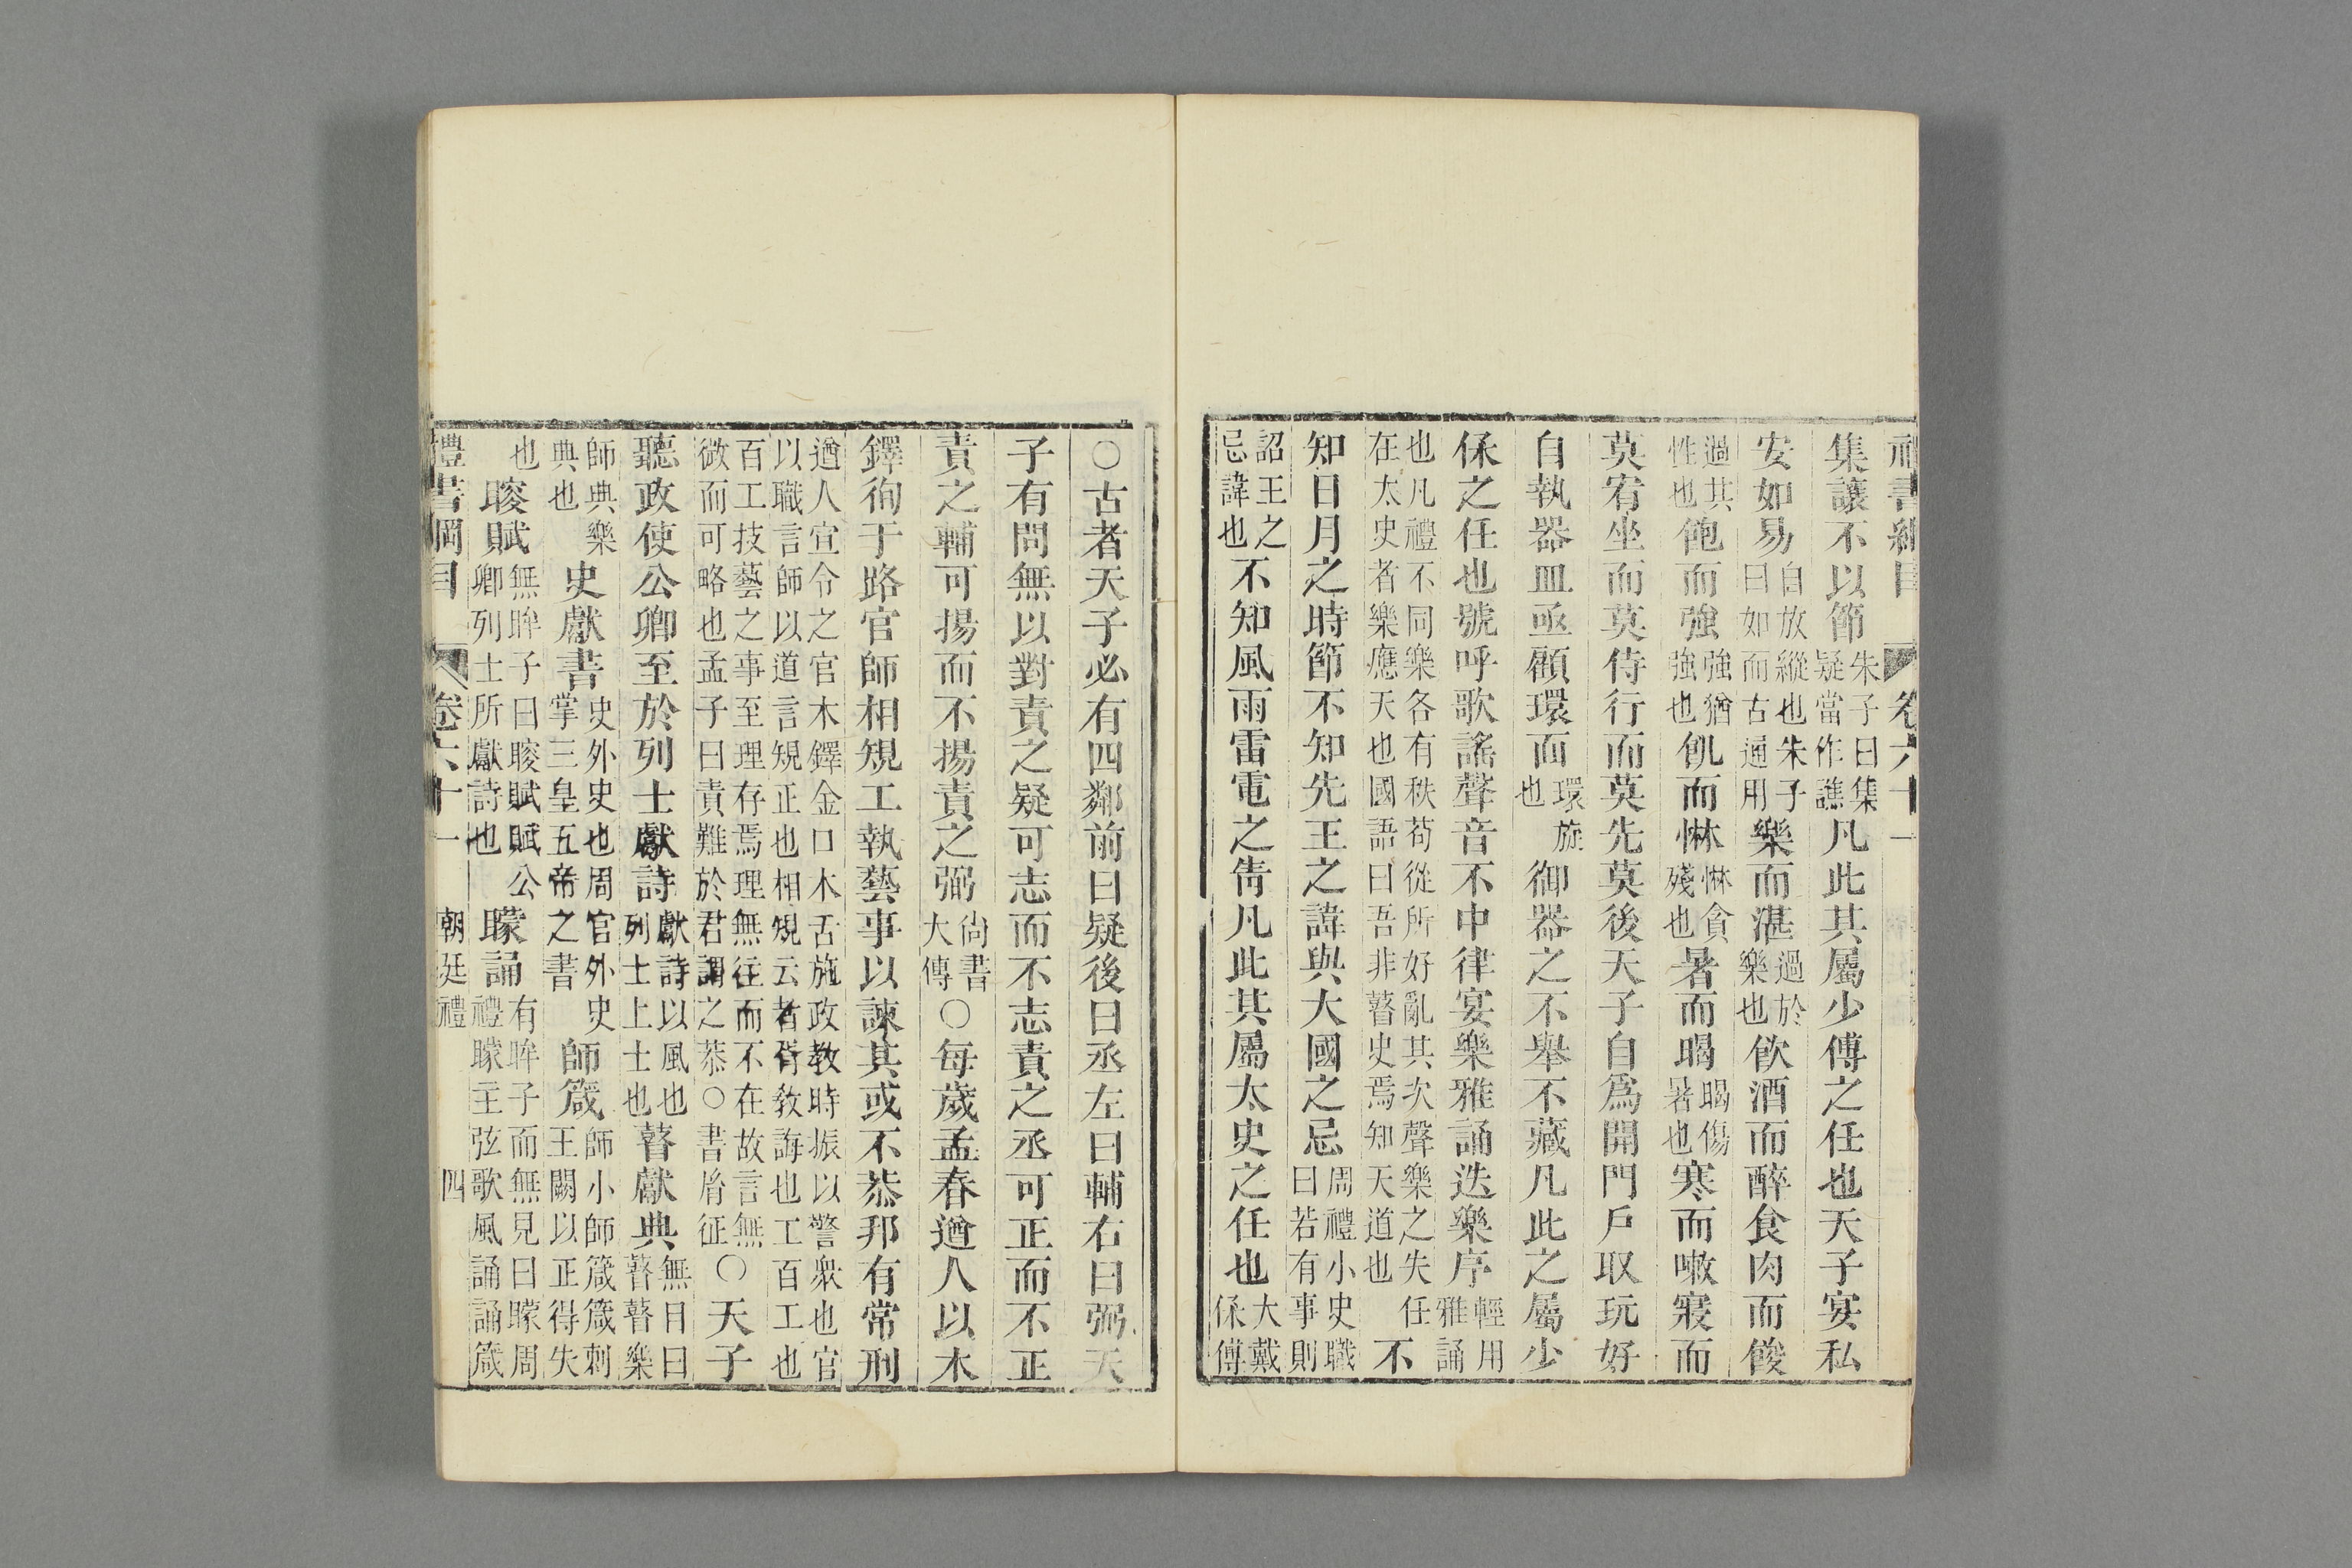 禮書綱目 卷六十一
集讓不以節朱子曰集疑當作譙凡此其屬少傅之任也天子宴私
安如易自放縱也朱子曰如而古通用樂而湛過於樂也飲酒而醉食肉而餕
過其性也飽而強強猶強也飢而惏惏貪殘也暑而暍暍傷暑也寒而嗽寢而
莫宥坐而莫侍行而莫先莫後天子自為開門戶取玩好
自執器皿亟顧環面環旋也御器之不舉不藏凡此之屬少
保之任也號呼歌謠聲音不中律宴樂雅誦迭樂序輕用雅誦
也凡禮不同樂各有秩苟從所好亂其次聲樂之失任在太史者樂應天也國語曰吾非瞽史焉知天道也不
知日月之時節不知先王之諱與大國之忌周禮小史職曰若有事則
詔王之忌諱也不知風雨雷電之眚凡此其屬太史之任也大戴保傅
○古者天子必有四鄰前曰疑後曰丞左曰輔右曰弼天
子有問無以對責之疑可志而不志責之丞可正而不正
責之輔可揚而不揚責之弼尚書大傳○每歲孟春遒人以木
鐸徇于路官師相規工執藝事以諫其或不恭邦有常刑
遒人宣令之官木鐸金口木舌施政教時振以警衆也官以職言師以道言規正也相規云者胥教誨也工百工也
百工技藝之事至理存焉理無往而不在故言無微而可略也孟子曰責難於君謂之恭○書胤征○天子
聽政使公卿至於列士獻詩獻詩以風也列士上士也瞽獻典無目曰瞽瞽樂
師典樂典也史獻書史外史也周官外史掌三皇五帝之書師箴師小師箴箴刺王闕以正得失
也瞍賦無眸子曰瞍賦賦公卿列士所獻詩也矇誦有眸子而無見曰矇周禮矇主弦歌風誦誦箴
禮書綱目 卷六十一 朝廷禮 四